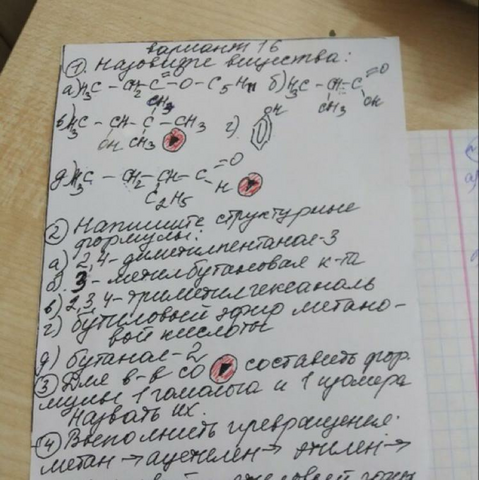 вариант 16
① Назовите вещества:
а) H3C – CH2 – C – O – C5H11 б) H3C – CH – C = O
= O
CH3 OH
CH3
в) H3C – CH – C – CH3 г) OH
OH CH3
д) H3C – CH2 – CH – C = O
C2H5 H
② Напишите структурные
формулы:
а) 2,4-диметилпентанол-3
б) 3-метилбутановая к-та
в) 2,3,4-триметилгексаналь
г) бутиловый эфир метано-
вой кислоты
д) бутанол-2
③ Для в-в со составить фор
мулы 1 гомолога и 1 изомера
назвать их.
④ Выполнить превращения:
метан → ацетилен → этилен →